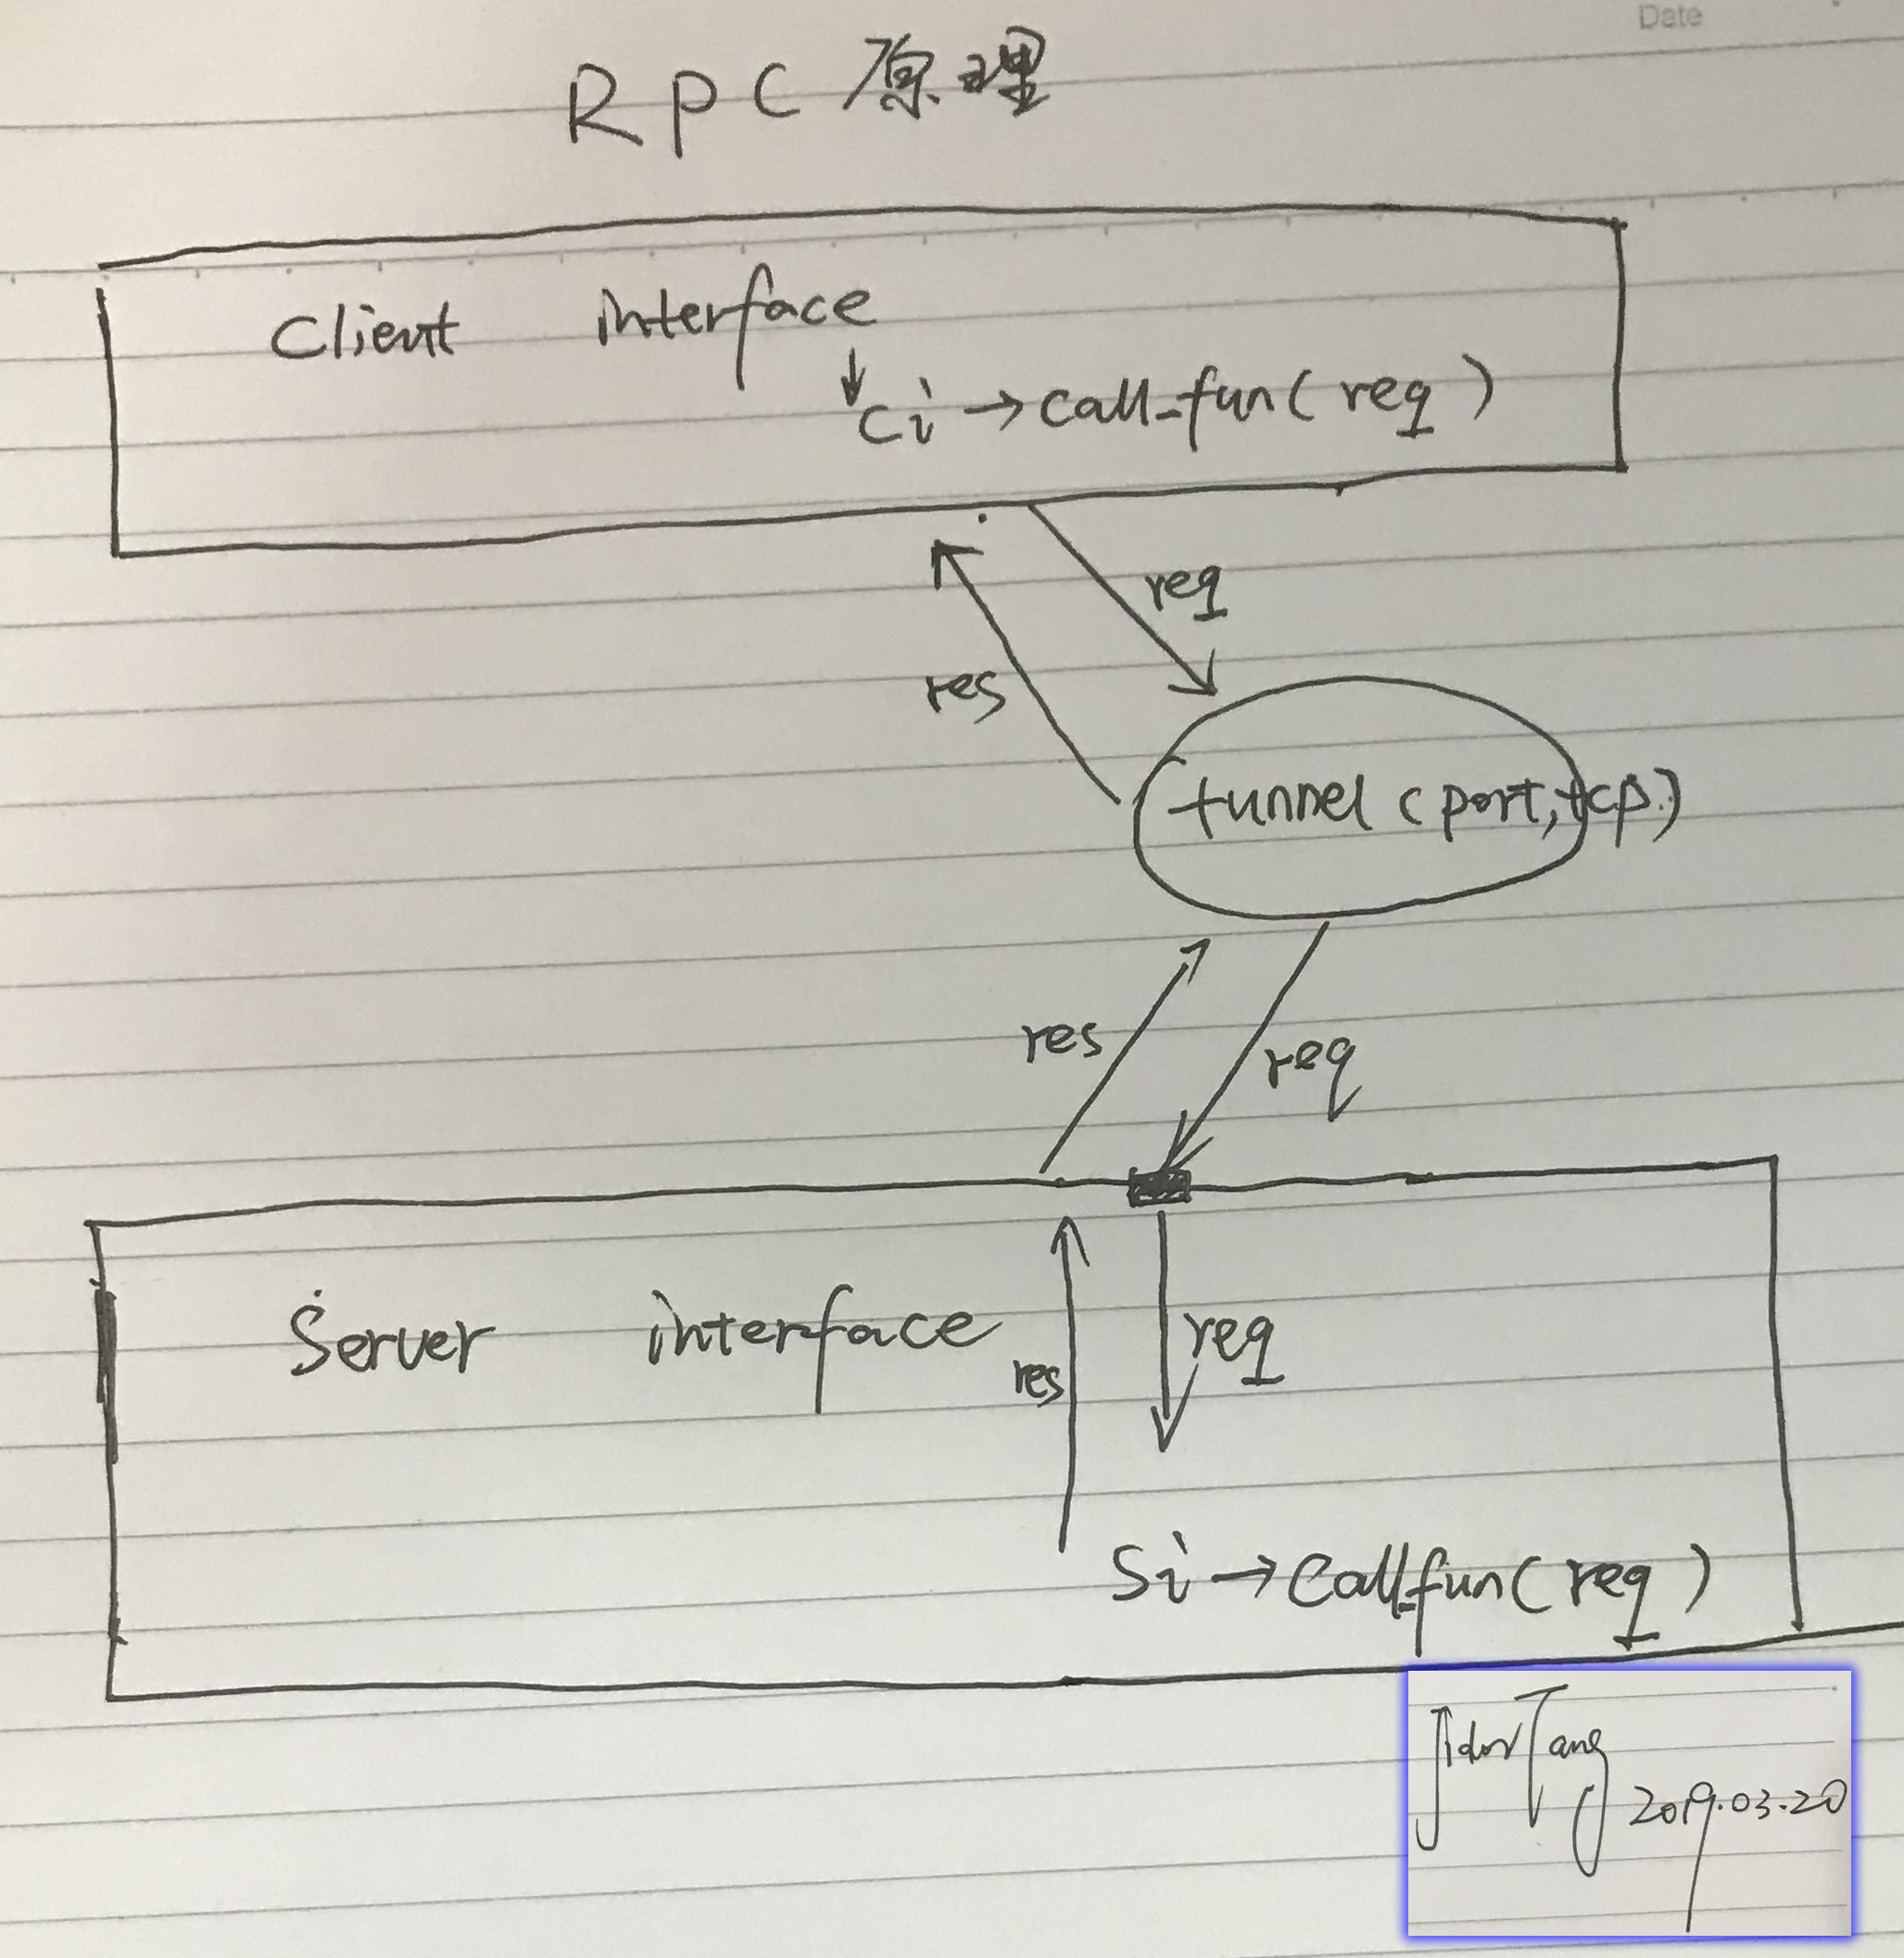 Date
RPC 原理
Client interface
↓
ci → call_fun(req)
req
res
tunnel (port, tcp)
res
req
Server interface
res
req
Si → Call_fun(req)
Tang 2019.03.20